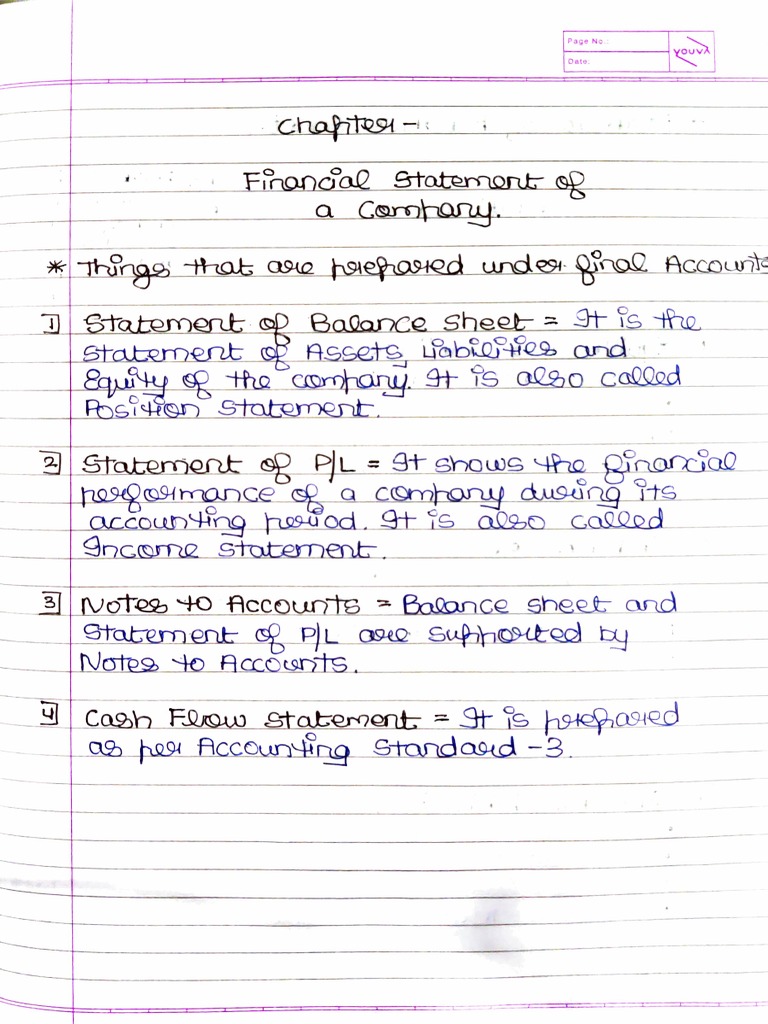 Page No.:
Date:
YOUVA
Chapter -
Financial Statement of
a Company.
* Things that are prepared under final Accounts
1 Statement of Balance sheet = It is the
statement of Assets, Liabilities and
Equity of the company. It is also called
Position statement.
2 Statement of P/L = It shows the financial
performance of a company during its
accounting period. It is also called
Income statement.
3 Notes to Accounts = Balance sheet and
Statement of P/L are supported by
Notes to Accounts.
4 Cash Flow statement = It is prepared
as per Accounting Standard -3.